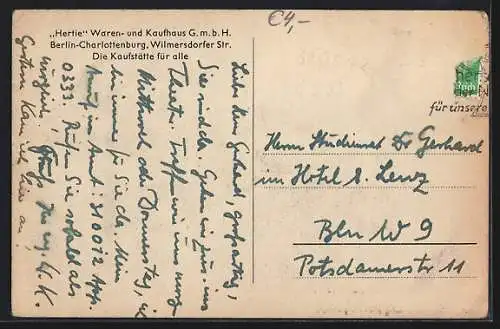 „Hertie" Waren- und Kaufhaus G.m.b.H.
Berlin-Charlottenburg, Wilmersdorfer Str.
Die Kaufstätte für alle
€4,-
für unsere
Herrn Studienrat Dr Gerhard
im Hotel s. Lenz
Bln W 9
Potsdamerstr 11
Lieber Herr Gerhard, großartig,
Sie sind da. Gehen wir zus. ins
Theater. Treffen wir uns
Mittwoch oder Donnerstag, ich
bin immer für Sie da. Mein
Anruf im Amt: 310012 App.
0333. Rufen Sie sobald als
möglich. Gruß
Gestern kam ich hier an,